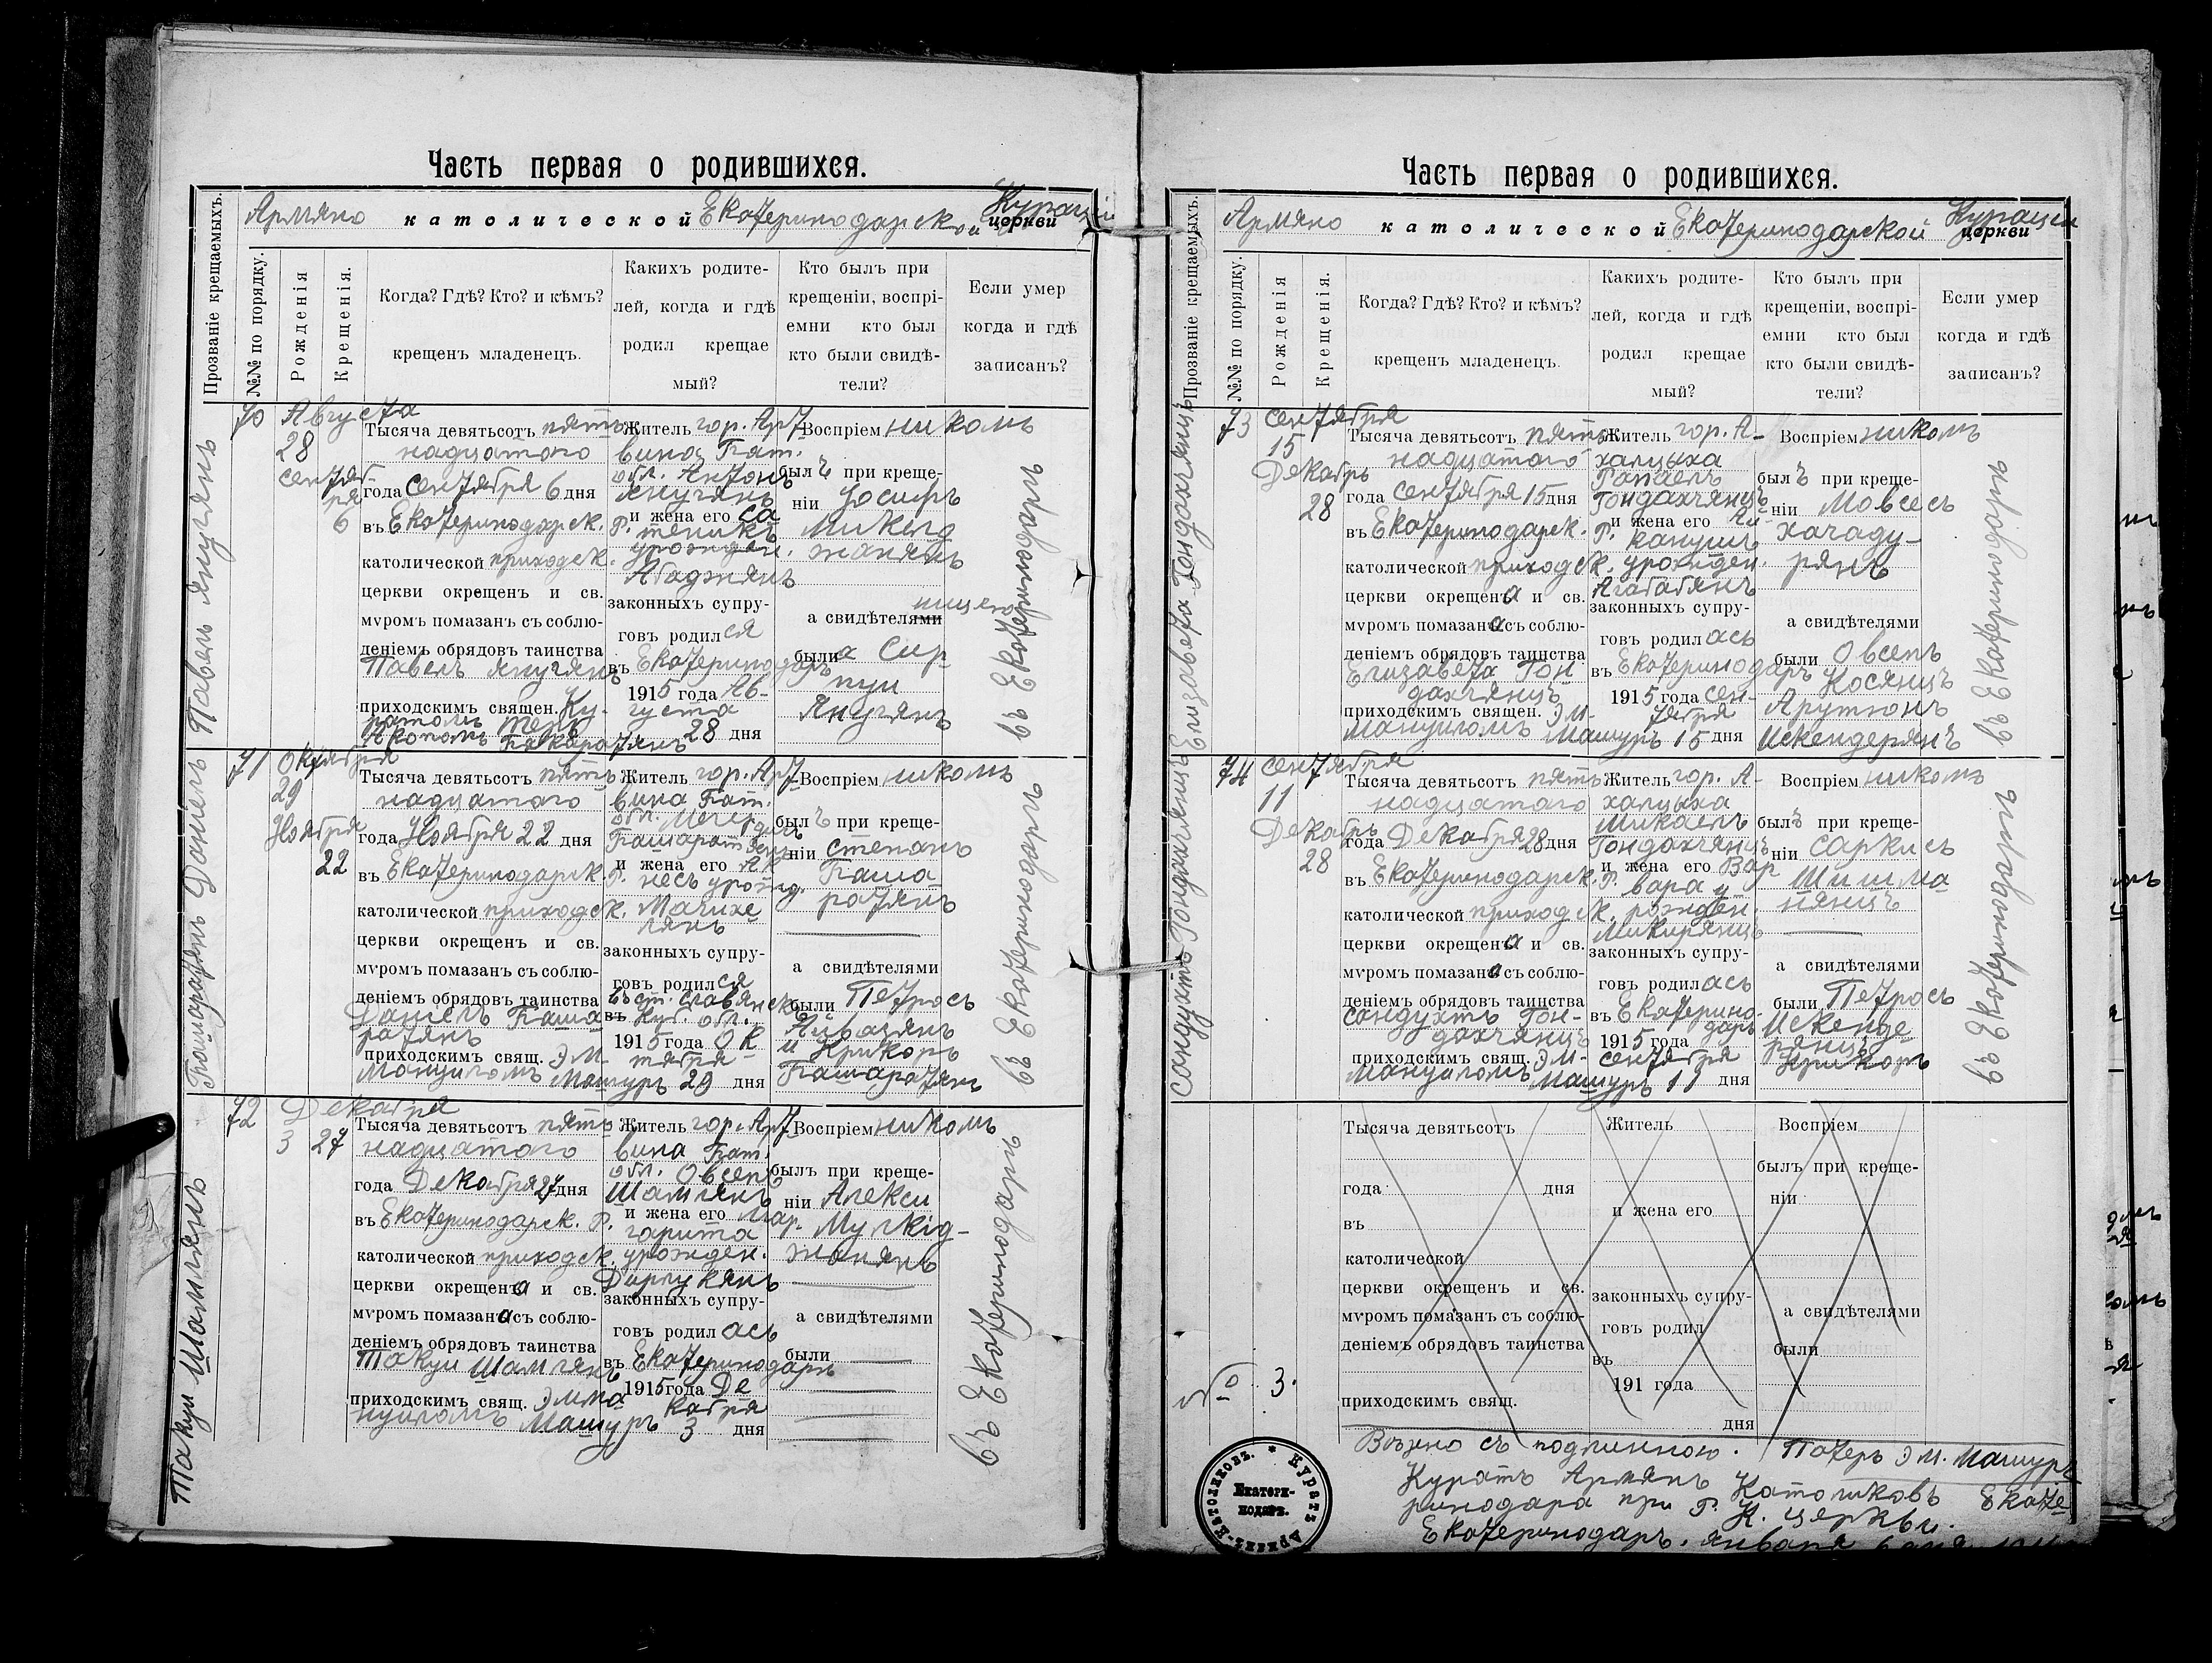 Часть первая о родившихся.
Армяно католической Екатеринодарской Курации
церкви
Прозваніе крещаемыхъ.
№№ по порядку.
Рожденія
Крещенія.
Когда? Гдѣ? Кто? и кѣмъ?
крещенъ младенецъ.
Какихъ родите-
лей, когда и гдѣ
родил крещае
мый?
Кто былъ при
крещеніи, воспрі-
емни кто был
кто были свидѣ-
тели?
Если умер
когда и гдѣ
записанъ?
Павелъ Янугянъ
70
Августа
28
Сентяб-
ря
6
Тысяча девятьсот пять
надцатого
года Сентября 6 дня
въ Екатеринодарск. Р.
католической приходск.
церкви окрещенъ и св.
мѵромъ помазанъ съ соблю-
деніемъ обрядовъ таинства
Павелъ Янугянъ
приходскимъ священ. Ку-
ратомъ Теръ
Акопомъ
Житель гор. Арт
вина Бат.
обл. Антонъ
Янугянъ
и жена его Са
теникъ
урожден.
Абаджянъ
законныхъ супру-
говъ родился
въ Екатеринодаръ
1915 года Ав-
густа
28 дня
Воспріемникомъ
былъ при креще-
ніи Іосифъ
Микид
жанянъ
а свидѣтелями
ницею
были а Сир
пуи
Янугянъ
въ Екатеринодаръ
Башаратянъ Даніелъ
71
Октября
29
Ноября
22
Тысяча девятьсот пять
надцатого
года Ноября 22 дня
въ Екатеринодарск. Р.
католической приходск.
церкви окрещенъ и св.
мѵромъ помазанъ съ соблю-
деніемъ обрядовъ таинства
Даніелъ Баша
ратянъ
приходскимъ свящ. Эм-
мануиломъ Машуръ
Житель гор. Арт
вина Бат.
обл.
Башарат
и жена его Аг
несъ урожд.
законныхъ супру-
говъ родился
въ ст. Славянск.
въ Куб. обл.
1915 года Ок
тября
29 дня
Воспріемникомъ
былъ при креще-
ніи Степанъ
Баша
ратянъ
а свидѣтелями
были Петросъ
Айвазянъ
и Крикоръ
Башаратянъ
въ Екатеринодаръ
Такуи Шамлянъ
72
Декабря
3 27
Тысяча девятьсот пять
надцатого
года Декабря 27 дня
въ Екатеринодарск. Р.
католической приходск.
церкви окрещенъа и св.
мѵромъ помазанъа съ соблю-
деніемъ обрядовъ таинства
Такуи Шамлянъ
приходскимъ свящ. Эмма
нуиломъ Машуръ
Житель гор. Арт
вина Бат.
обл. Овсепъ
Шамлянъ
и жена его Мар-
гарита
урожден.
законныхъ супру-
говъ родилась
въ Екатеринодаръ
1915 года Де
кабря
3 дня
Воспріемникомъ
былъ при креще-
ніи Алекси
Мулкид-
жанянъ
а свидѣтелями
были
въ Екатеринодаръ
Часть первая о родившихся.
Армяно католической Екатеринодарской Курации
церкви
Прозваніе крещаемыхъ.
№№ по порядку.
Рожденія
Крещенія.
Когда? Гдѣ? Кто? и кѣмъ?
крещенъ младенецъ.
Какихъ родите-
лей, когда и гдѣ
родил крещае
мый?
Кто былъ при
крещеніи, воспрі-
емни кто был
кто были свидѣ-
тели?
Если умер
когда и гдѣ
записанъ?
Елизавета Гондахчянцъ
73
Сентября
15
Декабрь
28
Тысяча девятьсот пять
надцатого
года Сентября 15 дня
въ Екатеринодарск. Р.
католической приходск.
церкви окрещенъа и св.
мѵромъ помазанъа съ соблю-
деніемъ обрядовъ таинства
Елизавета Гон
дахчянцъ
приходскимъ священ. Эм-
мануиломъ Машуръ
Житель гор. А-
халцыха
Рапаелъ
Гондахчянцъ
и жена его
урожден.
Агабабянъ
законныхъ супру-
говъ родилась
въ Екатеринодаръ
1915 года Сен-
тября
15 дня
Воспріемникомъ
былъ при креще-
ніи Мовсесъ
Хачаду-
рянъ
а свидѣтелями
были Овсепъ
Косянцъ
Арутюнъ
Искендерянъ
въ Екатеринодаръ
Сандухтъ Гондахчянцъ
74
Сентября
11
Декабрь
28
Тысяча девятьсот пять
надцатого
года Декабря 28 дня
въ Екатеринодарск. Р.
католической приходск.
церкви окрещенъа и св.
мѵромъ помазанъа съ соблю-
деніемъ обрядовъ таинства
Сандухтъ Гон-
дахчянцъ
приходскимъ свящ. Эм-
мануиломъ Машуръ
Житель гор. А-
халцыха
Микаелъ
Гондахчянцъ
и жена его Вар
вара у
рожден.
законныхъ супру-
говъ родилась
въ Екатерино-
даръ
1915 года
Сентября
11 дня
Воспріемникомъ
былъ при креще-
ніи Саркисъ
Шишма
нянцъ
а свидѣтелями
были Петросъ
Искенде
рянцъ
Крикоръ
въ Екатеринодаръ
Тысяча девятьсот
года дня
въ
католической
церкви окрещенъ и св.
мѵромъ помазанъ съ соблю-
деніемъ обрядовъ таинства
приходскимъ свящ.
Житель
и жена его
законныхъ супру-
говъ родил
въ
191 года
дня
Воспріем
былъ при креще-
ніи
а свидѣтелями
были
№ 3.
Вѣрно съ подлинною. Патеръ Эм. Машуръ
Куратъ Армянъ Католиковъ Екате
ринодара при Р. К. церкви.
Екатеринодаръ. Января
Куратъ Армянъ-Католиковъ.
Екатери-
нодаръ.